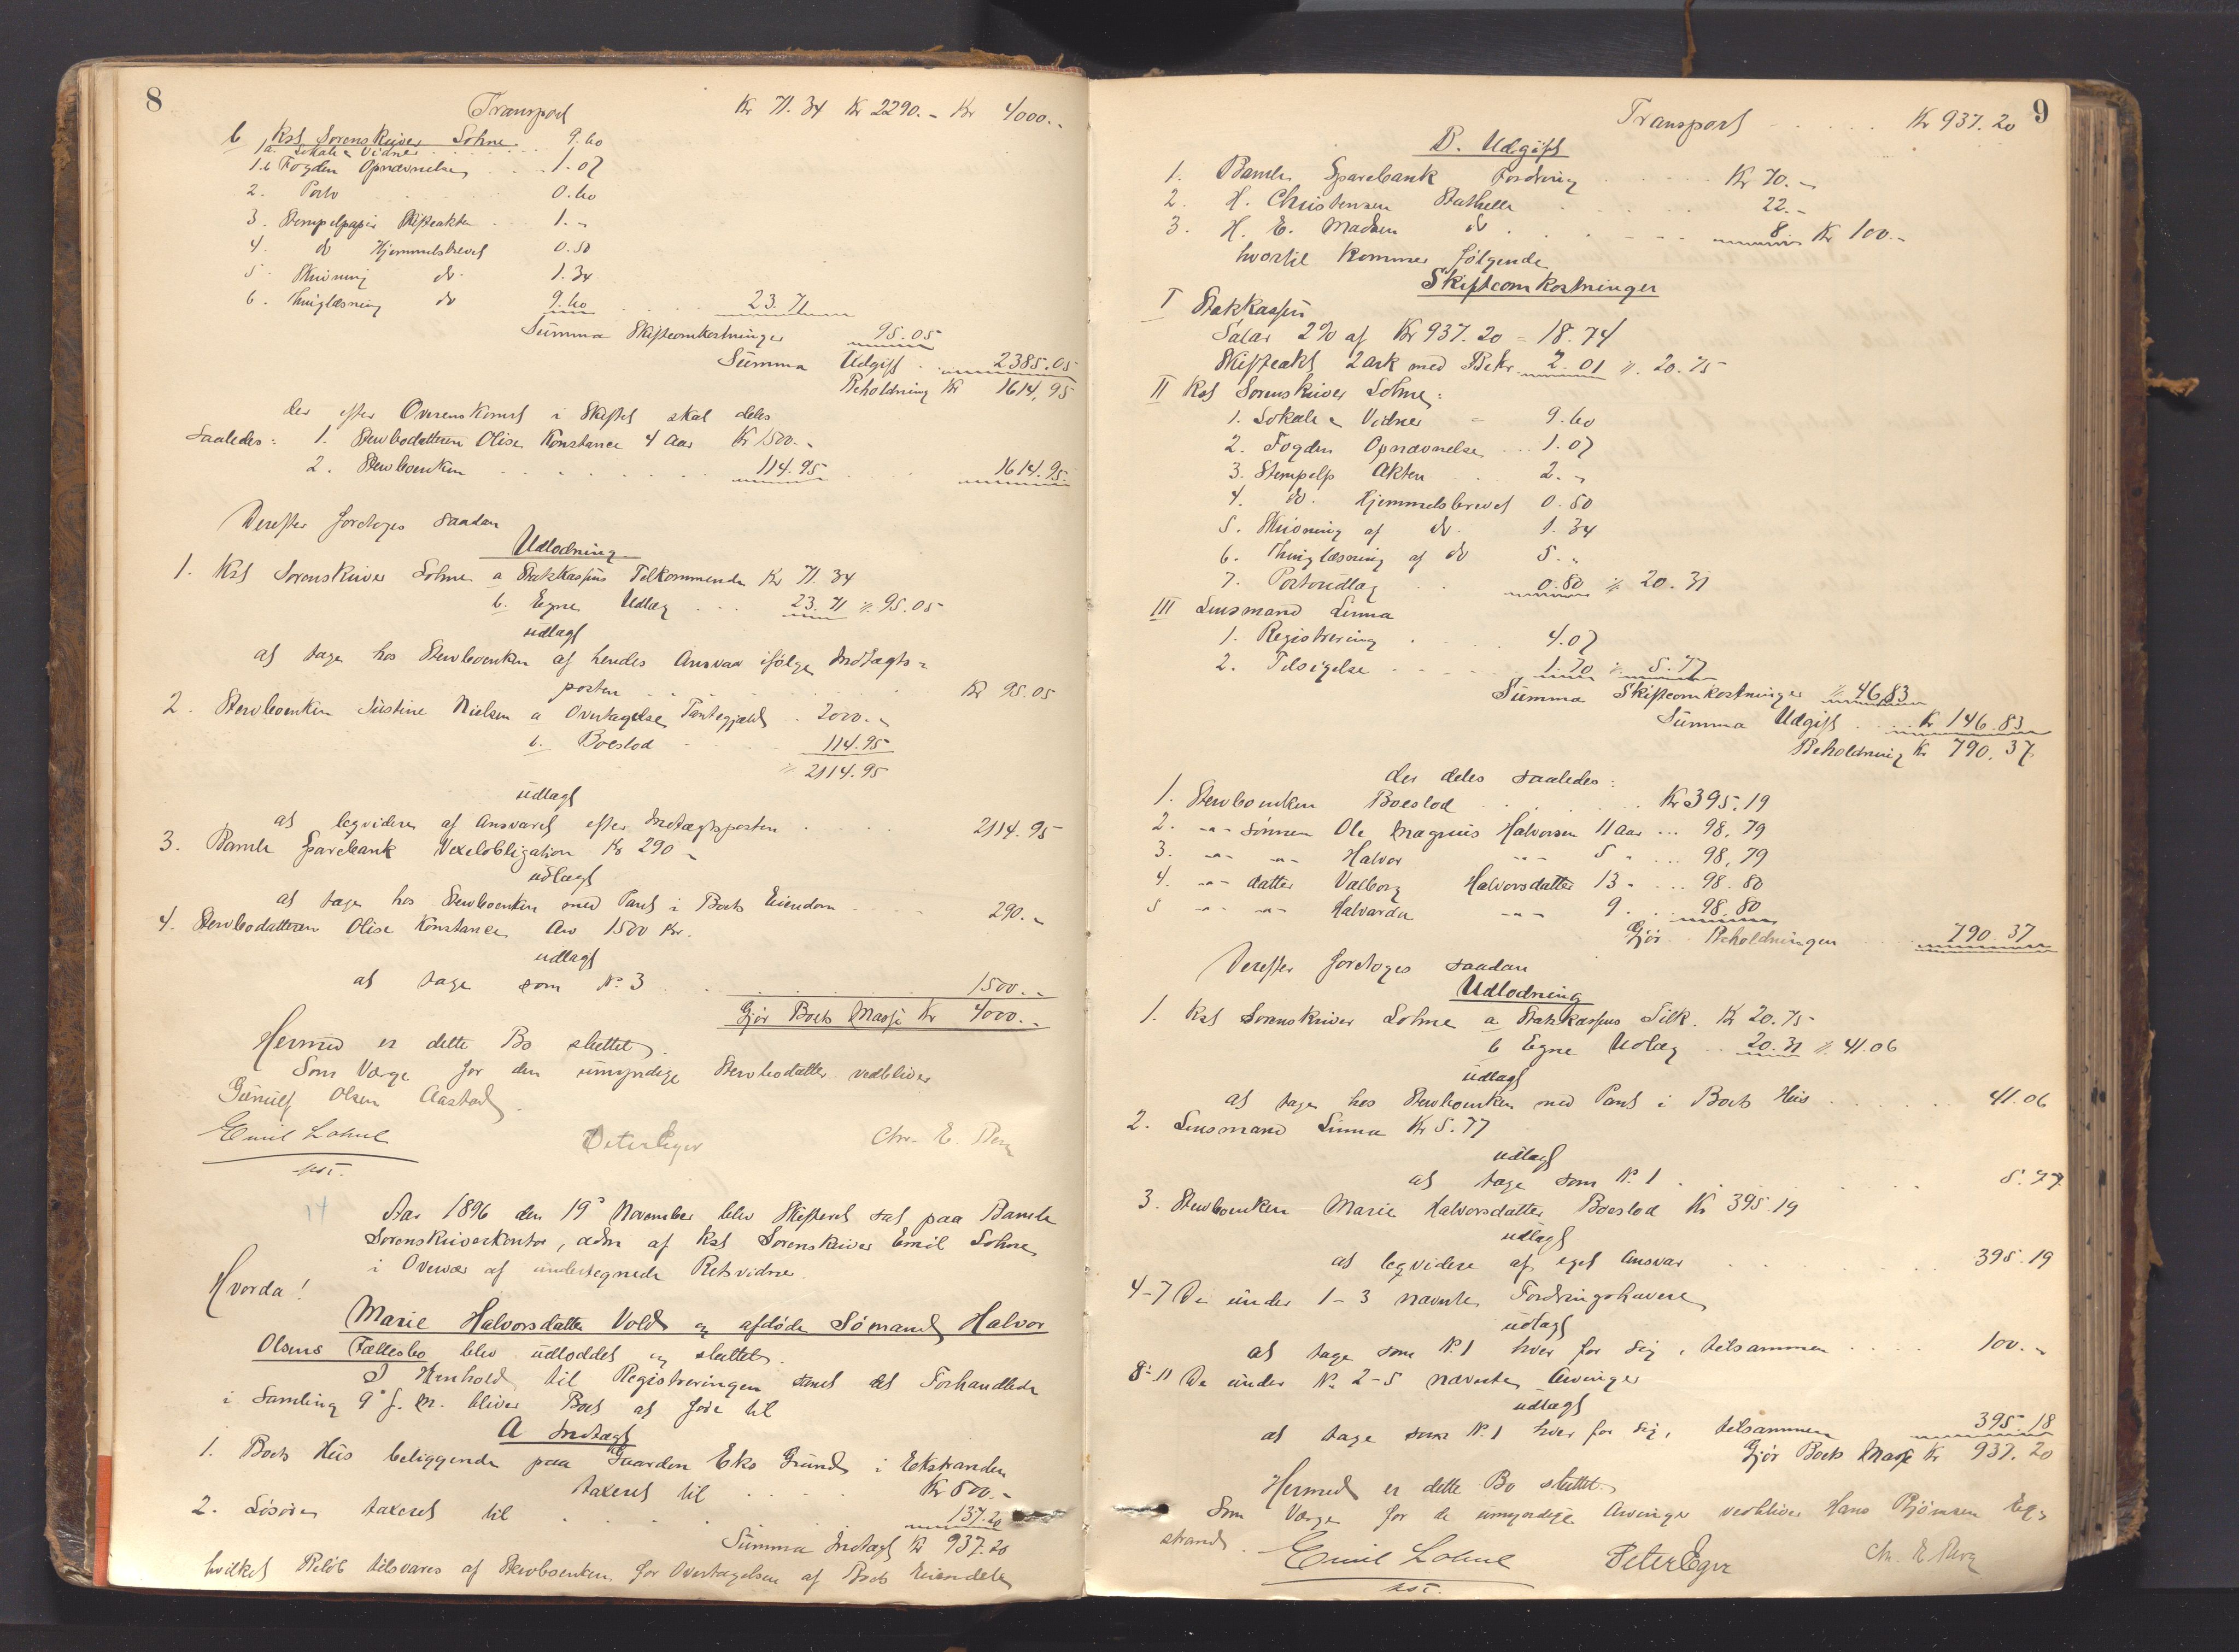 8
Transport Kr 71.34 Kr 2290.- Kr 4000.-
b Kst Sorenskriver Lohne
1a. Lokale & Vidner 9.60
1.b Fogden Opnævnelse 1.07
2. Porto 0.60
3. Stempelpapir Skifteakten 1.-
4. do Hjemmelsbrevet 0.50
5. Skrivning do. 1.34
6. Thinglæsning do 9.60 23.71
Summa Skifteomkostninger 95.05
Summa Udgift 2385.05
Beholdning Kr 1614,95
der efter Overenskomst i Skiftet skal deles
saaledes: 1. Stervbodatteren Olise Konstance 4 Aar Kr 1500.-
2. Stervboenken 114.95 1614.95
Derefter foretoges saadan
Udlodning
1. Kst Sorenskriver Lohne a Statskassens Tilkommende Kr 71.34
b. Egne Udlæg 23.71 95.05
udlagt
at tage hos Stervboenken af hendes Ansvar ifølge Indtægts-
posten Kr 95.05
2. Stervboenken Justine Nielsen a Overtagelse Pantegjæld 2000.-
b. Boeslod 114.95
2114.95
udlagt
at leqvidere af Ansvaret efter Indtægtsposten 2114.95
3. Bamle Sparebank Vexelobligation Kr 290-
udlagt
at tage hos Stervboenken med Pant i Boets Eiendom 290.-
4. Stervbodatteren Olise Konstance Arv 1500 Kr.
udlagt
at tage som No 3 1500.-
Gjør Boets Masse Kr 4000.-
Hermed er dette Bo sluttet.
Som Værge for den umyndige Stervbodatter vedbliver
Gunulf Olsen Aastad.
Emil Lohne Peter Eger Chr. E. Berg
kst.
14 Aar 1896 den 19de November blev Skifteret sat paa Bamle
Sorenskriverkontor, adm af kst Sorenskriver Emil Lohne
i Overvær af undertegnede Retsvidner.
Hvorda!
Marie Halvorsdatter Volds og afdøde Sømand Halvor
Olsens Fællesbo blev udloddet og sluttet.
I Henhold til Registreringen samt det Forhandlede
i Samling 9de f. M. bliver Boet at føre til
A Indtægt
1. Boets Hus beliggende paa Gaarden Eks Grund i Ekstranden
taxeret til Kr 800.-
2. Løsøre taxeret til 137.20
Summa Indtægt Kr 937.20
hvilket Beløb tilsvares af Stervboenken for Overtagelsen af Boets Eiendele
9
Transport Kr 937.20
B. Udgift
1. Bamle Sparebank Fordring Kr 70.-
2. H. Christensen Stathelle 22.-
3. H. E. Madsen do 8 Kr 100.-
hvortil kommer følgende
Skifteomkostninger
I Statskassen
Salær 2% af Kr 937.20 = 18.74
Skifteakt 2 Ark med Bekr. 2.01 20.75
II Kst Sorenskriver Lohne:
1. Lokale & Vidner 9.60
2. Fogden Opnævnelse 1.07
3. Stempelp Akten 2.-
4. do. Hjemmelsbrevet 0.50
5. Skrivning af do. 1.34
6. Thinglæsning af do 5.-
7. Portoudlæg 0.80 20.31
III Lensmand Linna
1. Registrering 4.07
2. Tilsigelse 1.70 5.77
Summa Skifteomkostninger 46,83
Summa Udgift Kr 146.83
Beholdning Kr 790.37
der deles saaledes:
1. Stervboenken Boeslod Kr 395.19
2. -"- sønnen Ole Magnus Halvorsen 11 Aar 98.79
3. -"- -"- Halvor -"- 5 " 98,79
4. -"- datter Valborg Halvorsdatter 13 " 98.80
5 -"- -"- Halvarda -"- 9 " 98.80
Gjør Beholdningen 790.37
Derefter foretoges saadan
Udlodning
1. Kst Sorenskriver Lohne a Statskassens Tilk. Kr 20.75
b Egne Udlæg 20.31 41.06
udlagt
at tage hos Stervboenken med Pant i Boets Hus 41.06
2. Lensmand Linna Kr 5.77
udlagt
at tage som No 1 5.77
3. Stervboenken Marie Halvorsdatter Boeslod Kr 395.19
udlagt
at leqvidere af eget Ansvar 395.19
4-7 De under 1-3 nævnte Fordringshavere
udlagt
at tage som No 1 hver for sig, tilsammen 100.-
8-11 De under No 2-5 nævnte Arvinger
udlagt
at tage som No 1 hver for sig, tilsammen 395.18
Gjør Boets Masse Kr 937.20
Hermed er dette Bo sluttet.
Som Værge for de umyndige Arvinger vedbliver Hans Bjørnsen Eg-
strand.
Emil Lohne Peter Eger Chr. E Berg
kst.